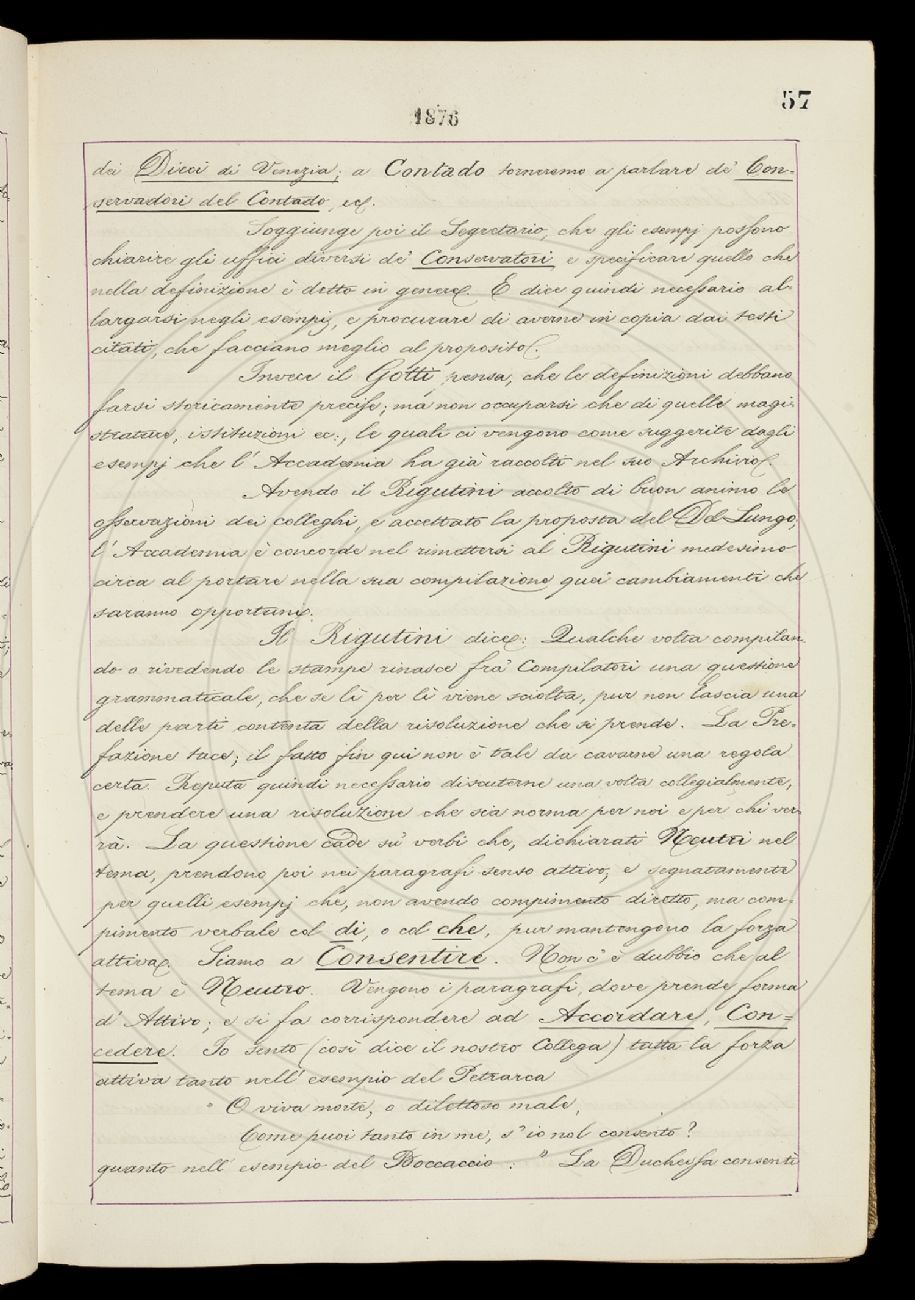 57
1876
dei Dieci di Venezia; a Contado torneremo a parlare de' Con=
servadori del Contado, ec.
Soggiunge poi il Segretario, che gli esempj possono
chiarire gli uffici diversi de' Conservatori e specificare quello che
nella definizione è detto in genere. E dice quindi necessario al-
largarsi negli esempj, e procurare di averne in copia dai testi
citati, che facciano meglio al proposito.
Invece il Gotti pensa, che le definizioni debbano
farsi storicamente precise; ma non occuparsi che di quelle magi-
strature, istituzioni ec., le quali ci vengono come suggerite dagli
esempj che l'Accademia ha già raccolti nel suo Archivio.
Avendo il Rigutini accolto di buon animo le
osservazioni dei colleghi, e accettato la proposta del Del-Lungo;
l'Accademia è concorde nel rimettersi al Rigutini medesimo
circa al portare nella sua compilazione quei cambiamenti che
saranno opportuni.
Il Rigutini dice: Qualche volta compilan-
do o rivedendo le stampe rinasce fra' Compilatori una questione
grammaticale, che se lì per lì viene sciolta, pur non lascia una
delle parti contenta della risoluzione che si prende. La Pre-
fazione tace; il fatto fin qui non è tale da cavarne una regola
certa. Reputa quindi necessario discuterne una volta collegialmente,
e prendere una risoluzione che sia norma per noi e per chi ver-
rà. La questione cade su' verbi che, dichiarati Neutri nel
tema, prendono poi nei paragrafi senso attivo; e segnatamente
per quelli esempj che, non avendo compimento diretto, ma com-
pimento verbale col di, o col che, pur mantengono la forza
attiva. Siamo a Consentire. Non c'è dubbio che al
tema è Neutro. Vengono i paragrafi, dove prende forma
d'Attivo; e si fa corrispondere ad Accordare, Con=
cedere. Io sento (così dice il nostro Collega) tutta la forza
attiva tanto nell'esempio del Petrarca
" O viva morte, o dilettoso male,
Come puoi tanto in me, s'io nol consento?
quanto nell'esempio del Boccaccio: " La Duchessa consentì